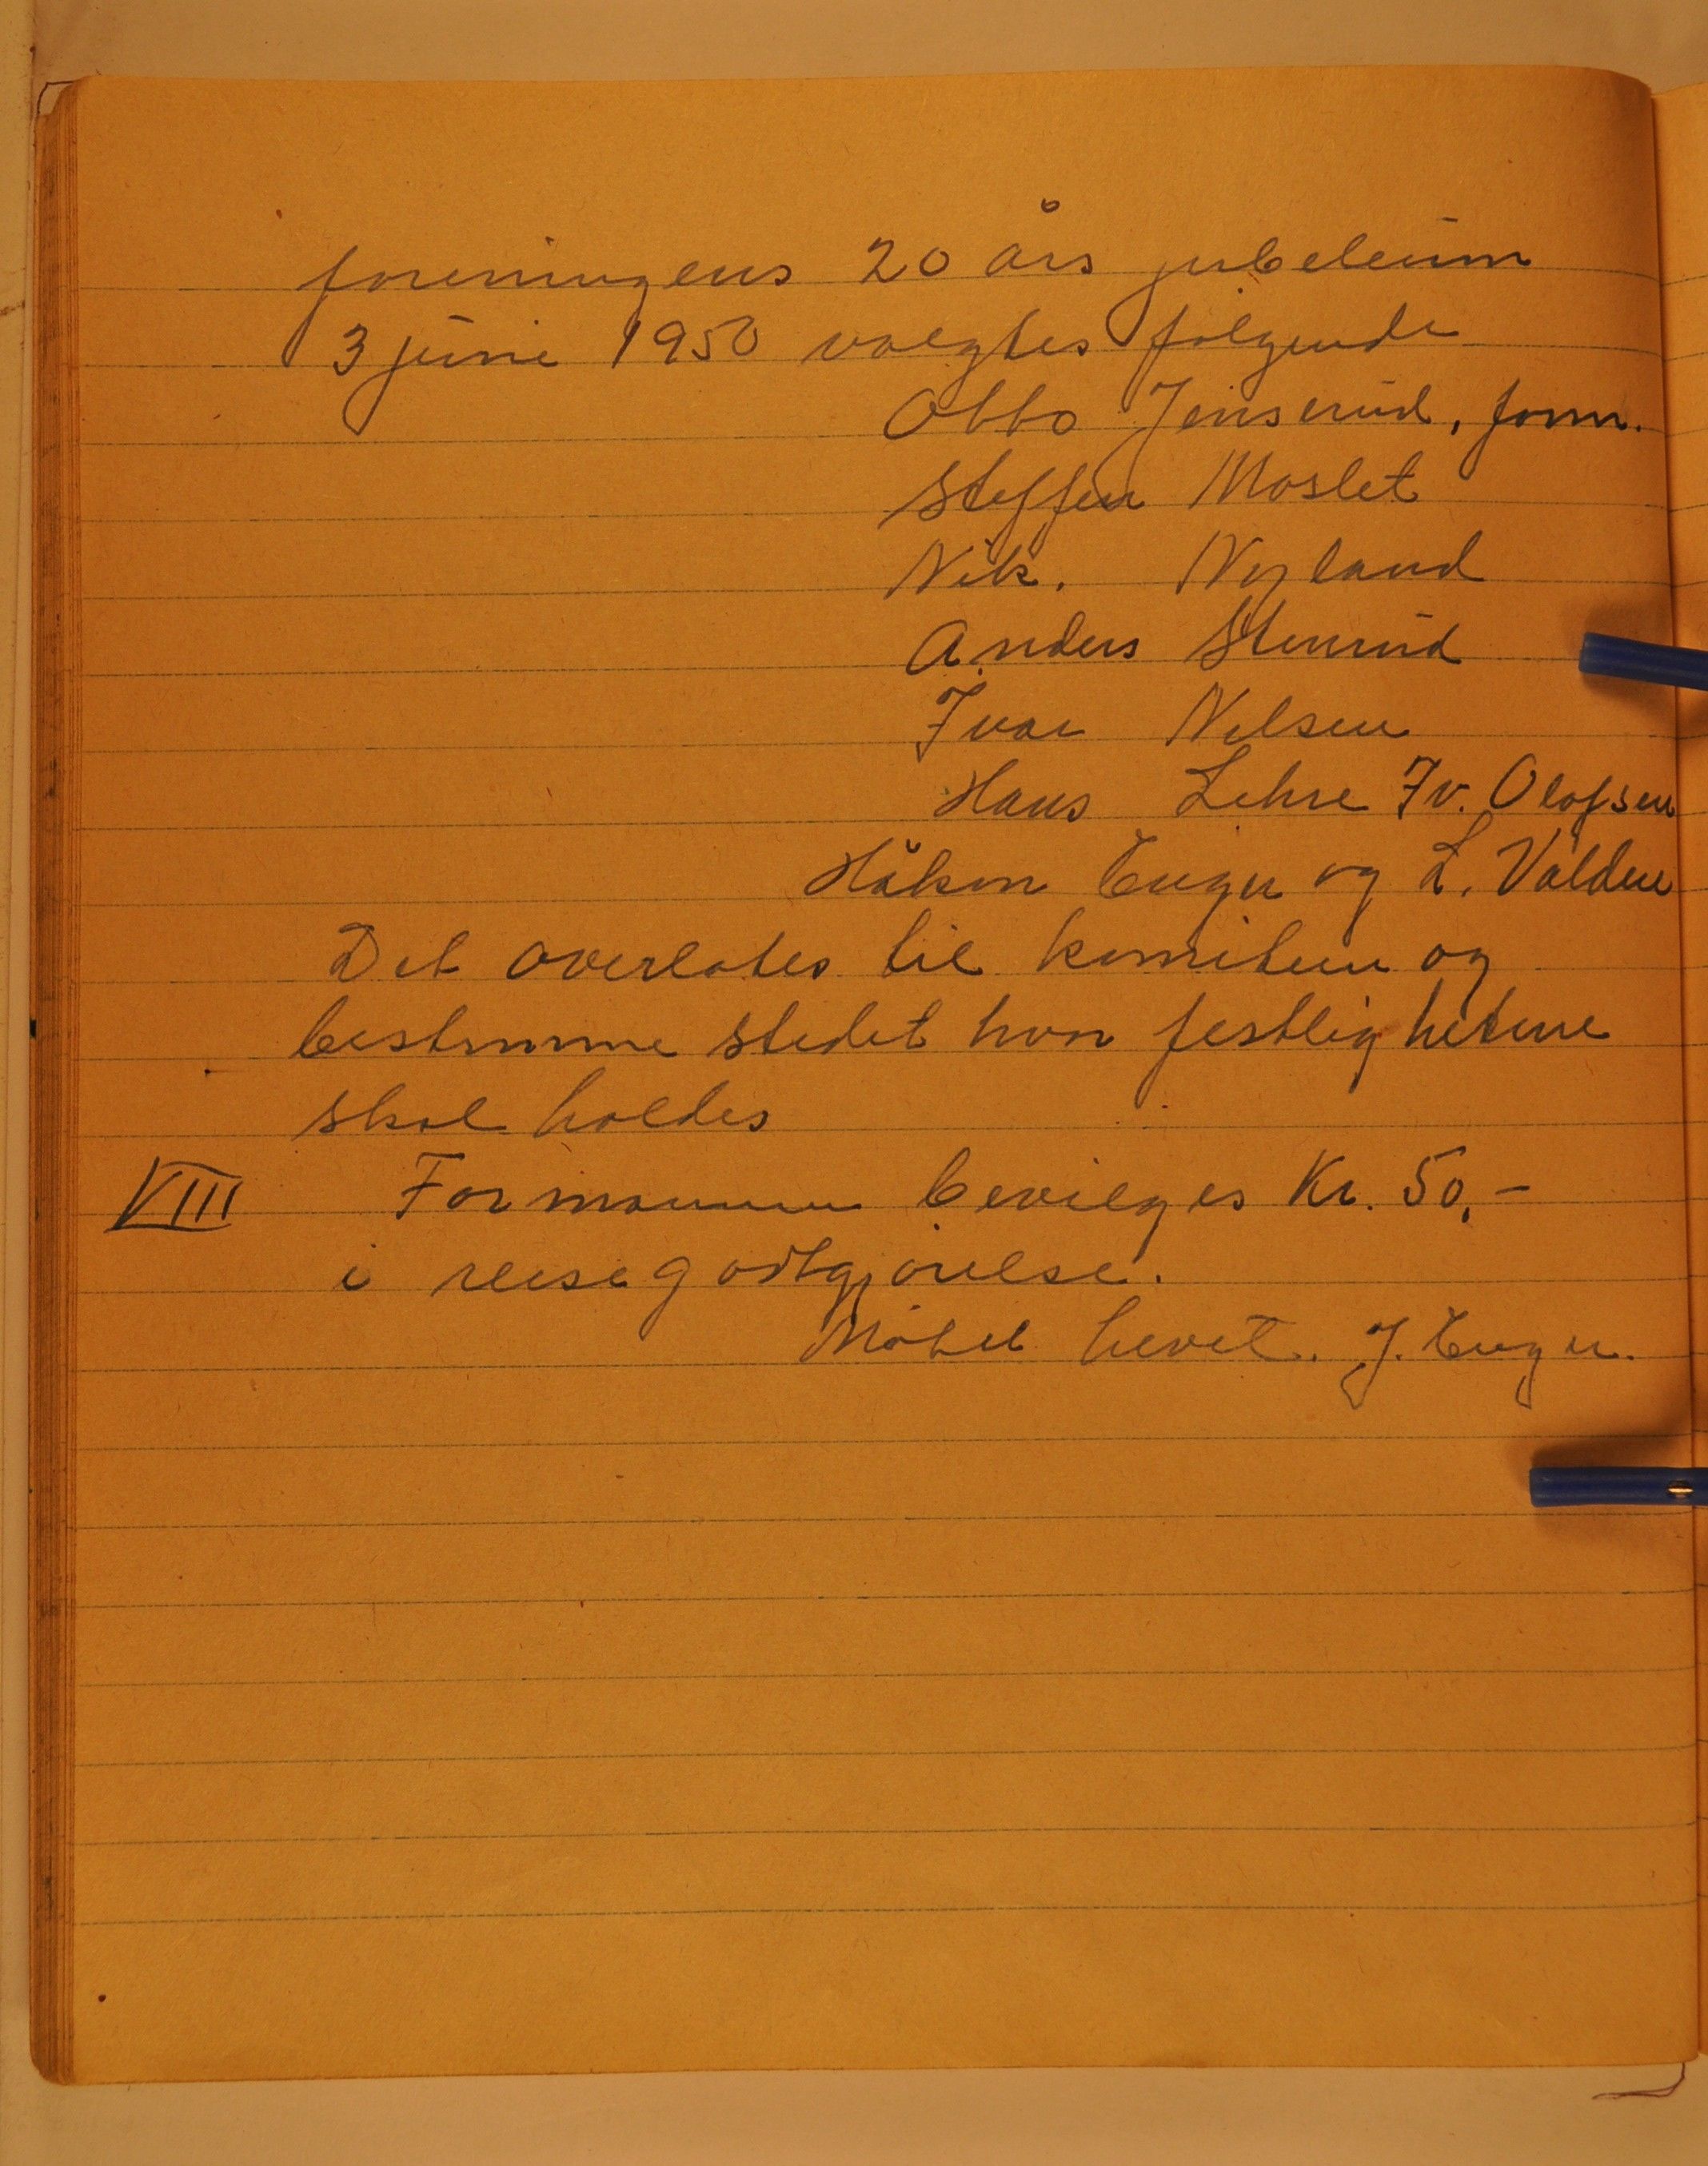 foreningens 20 års jubeleum
3 juni 1950 valgtes følgende
Otto Jenserud, form.
Steffen Moslet
Nik. Nyland
Anders Stenrud
Ivar Nilsen
Hans Lehre Iv. Olafsen
Håkon Enger og L. Valden
Det overlates til komiteen og
bestemme stedet hvor festlighetene
skal holdes
VIII Formannen bevilges Kr. 50,-
i reisegodtgjørelse.
Møtet hevet. J. Enger.